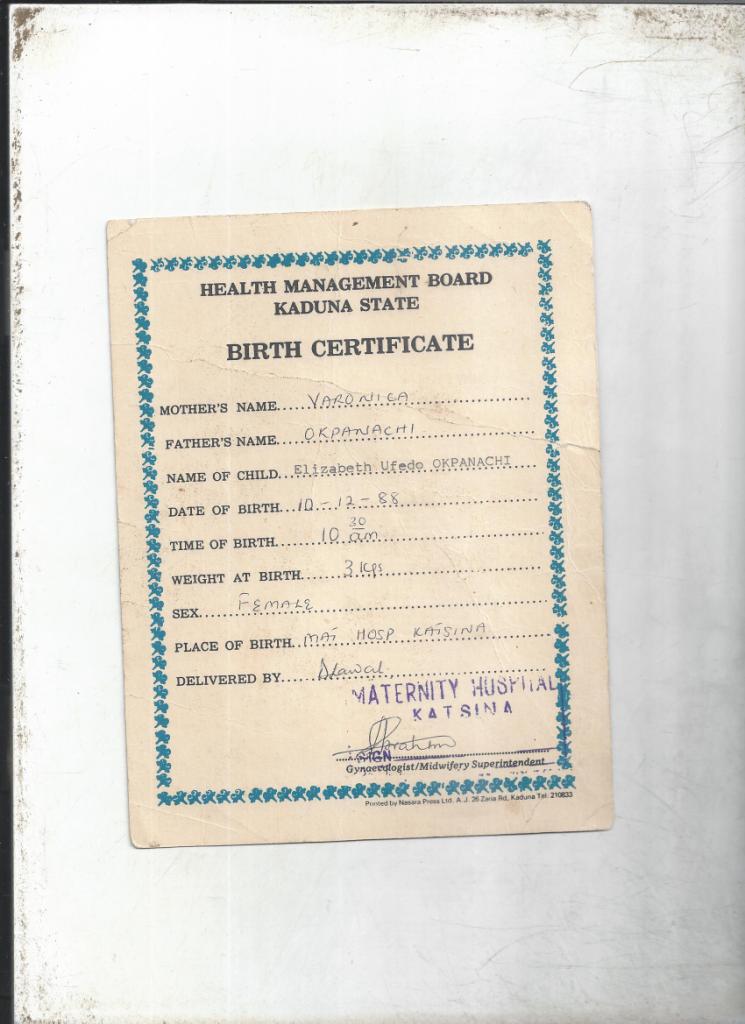 HEALTH MANAGEMENT BOARD
KADUNA STATE
BIRTH CERTIFICATE
MOTHER'S NAME....VARONICA
FATHER'S NAME....OKPANACHI
NAME OF CHILD..Elizabeth Ufedo OKPANACHI
DATE OF BIRTH..10-12-88
TIME OF BIRTH....10 30 am
WEIGHT AT BIRTH....3 kgs
SEX....FEMALE
PLACE OF BIRTH..MAT HOSP KATSINA
DELIVERED BY....
MATERNITY HOSPITAL
KATSINA
SIGN
Gynaecologist/Midwifery Superintendent
Printed by Nasara Press Ltd. A.J. 26 Zaria Rd, Kaduna Tel: 210833